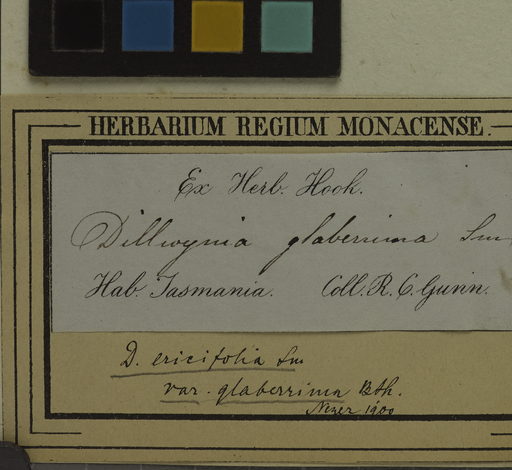 HERBARIUM REGIUM MONACENSE.
Ex Herb. Hook.
Dillwynia glaberrima Sm
Hab. Tasmania. Coll. R. C. Gunn.
D. ericifolia Sm
var. glaberrima Bth.
1900